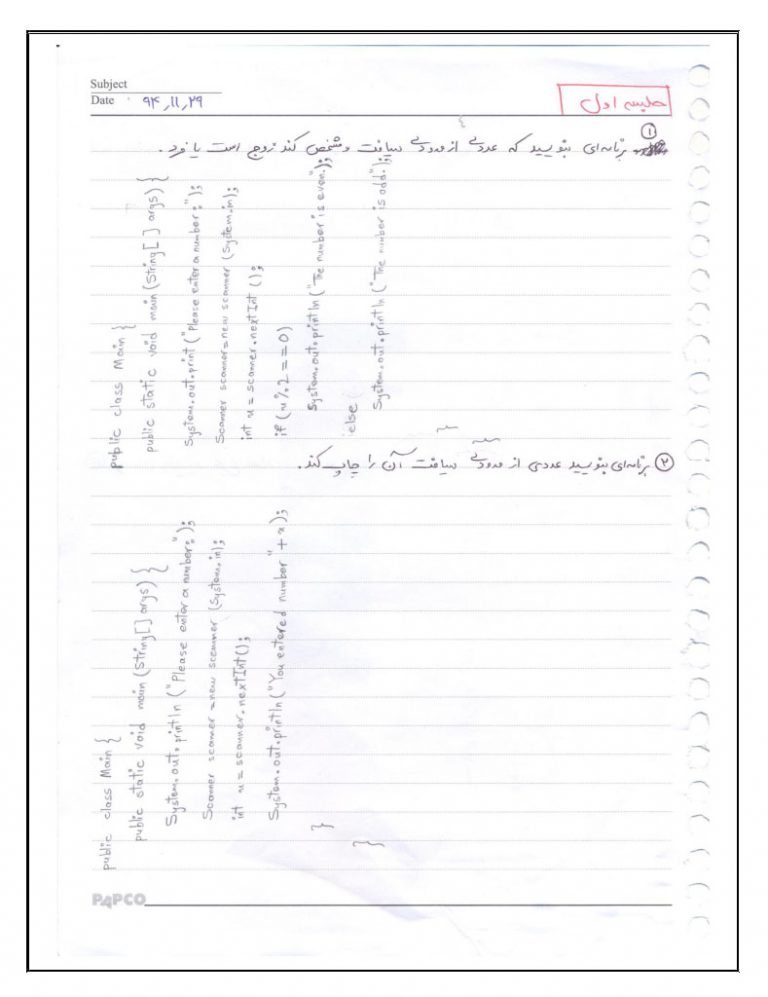 Subject
Date ۹۴/۱۱/۲۹
جلسه اول
① برنامه‌ای بنویسید که عددی از ورودی دریافت و مشخص کند زوج است یا فرد.
public class Main {
public static void main (String[] args) {
System.out.print ("Please enter a number:");
Scanner scanner=new scanner (System.in);
int x = scanner.nextInt ();
if (x%2==0)
System.out.println ("The number is even.");
else {
System.out.println ("The number is odd.");
}
}
② برنامه‌ای بنویسید عددی از ورودی دریافت آن را چاپ کند.
public class Main {
public static void main (String[] args) {
System.out.println ("Please enter a number:");
Scanner scanner = new scanner (System.in);
int x = scanner.nextInt();
System.out.println ("You entered number" + x);
}
}
PAPCO